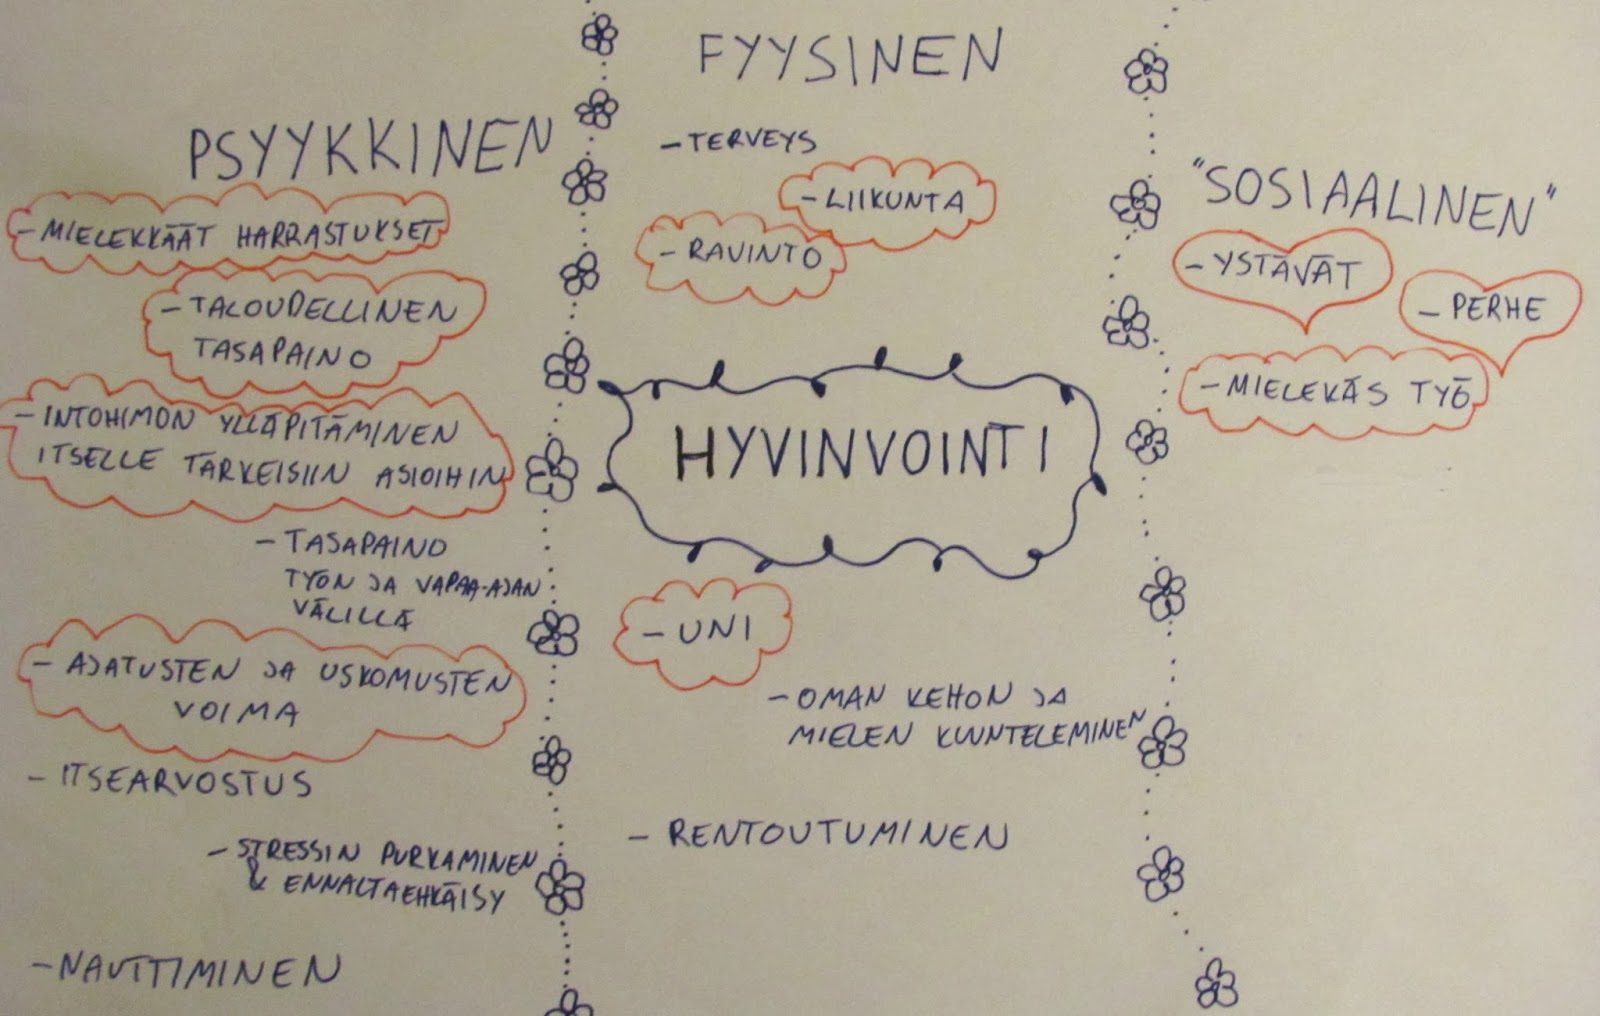 PSYYKKINEN
- MIELEKKÄÄT HARRASTUKSET
- TALOUDELLINEN
TASAPAINO
- INTOHIMON YLLÄPITÄMINEN
ITSELLE TÄRKEISIIN ASIOIHIN
- TASAPAINO
TYÖN JA VAPAA-AJAN
VÄLILLÄ
- AJATUSTEN JA USKOMUSTEN
VOIMA
- ITSEARVOSTUS
- STRESSIN PURKAMINEN
& ENNALTAEHKÄISY
- NAUTTIMINEN
FYYSINEN
- TERVEYS
- LIIKUNTA
- RAVINTO
HYVINVOINTI
- UNI
- OMAN KEHON JA
MIELEN KUUNTELEMINEN
- RENTOUTUMINEN
"SOSIAALINEN"
- YSTÄVÄT
- PERHE
- MIELEKÄS TYÖ